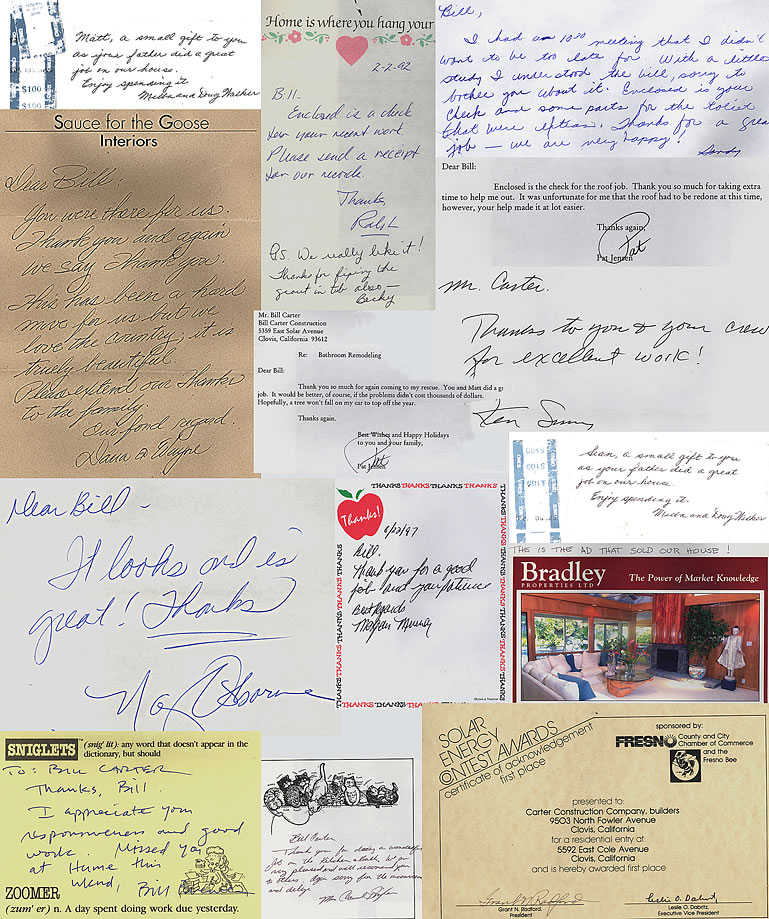 Matt, a small gift to you
as your father did a great
job on our house.
Enjoy spending it.
Melba and Doug Walker
$100
$100
Home is where you hang your
2-2-92
Bill-
Enclosed is a check
for your recent work
Please send a receipt
for our records.
Thanks,
Ralph
P.S. We really like it!
Thanks for fixing the
grout in tub also—
Becky
Bill,
I had a 10:30 meeting that I didn't
want to be too late for. With a little
study I understood the bill, sorry to
bother you about it. Enclosed is your
check and some parts for the toilet
that were leftover. Thanks for a great
job — we are very happy!
Sandy
Sauce for the Goose
Interiors
Dear Bill:
You were there for us.
Thank you and again
we say Thank you.
This has been a hard
move for us but we
love the country, it is
truely beautiful
Please extend our Thanks
to the family
Our fond regard.
Dana & Wayne
Dear Bill:
Enclosed is the check for the roof job. Thank you so much for taking extra
time to help me out. It was unfortunate for me that the roof had to be redone at this time,
however, your help made it at lot easier.
Thanks again,
Pat
Pat Jensen
Mr. Carter.
Thanks to you & your crew
for excellent work!
Ken
Mr. Bill Carter
Bill Carter Construction
5359 East Solar Avenue
Clovis, California 93612
Re: Bathroom Remodeling
Dear Bill:
Thank you so much for again coming to my rescue. You and Matt did a gr
job. It would be better, of course, if the problems didn't cost thousands of dollars.
Hopefully, a tree won't fall on my car to top off the year.
Thanks again.
Best Wishes and Happy Holidays
to you and your family,
Pat
Pat Jensen
Sean, a small gift to you
as your father did a great
job on our house.
Enjoy spending it.
Melba and Doug Walker
$100
$100
Dear Bill -
It looks and is
great! Thanks
Osborne
THANKS THANKS THANKS THANKS THANKS
Thanks!
6/23/97
Bill.
Thank you for a good
job and your patience
Best regards
Megan Murray
THANKS THANKS THANKS THANKS THANKS
THIS IS THE AD THAT SOLD OUR HOUSE!
Bradley
PROPERTIES LTD
The Power of Market Knowledge
SNIGLETS
(snig' lit): any word that doesn't appear in the
dictionary, but should
To: Bill Carter
Thanks, Bill.
I appreciate your
responsiveness and good
work. Missed you
at Hume this
wknd,
Bill
ZOOMER
(zum' er) n. A day spent doing work due yesterday.
Bill Carter
Thank you for doing a wonderful
job on the kitchen & bath. We are
very pleased and will recommend you
to others. Again sorry for the inconvenience
and delays
SOLAR
ENERGY
CONTEST AWARDS
certificate of acknowledgement
first place
sponsored by:
FRESNO County and City
Chamber of Commerce
and the
Fresno Bee
presented to:
Carter Construction Company, builders
9503 North Fowler Avenue
Clovis, California
for a residential entry at:
5592 East Cole Avenue
Clovis, California
and is hereby awarded first place
Grant N. Radford
Grant N. Radford,
President
Leslie O. Dabritz
Leslie O. Dabritz,
Executive Vice President